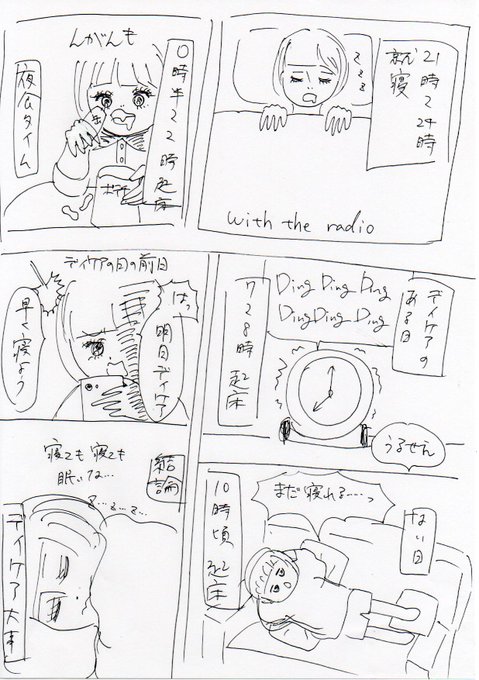 21時~24時
就寝
zzz
with the radio
0時半~2時起床
んがんも
夜食タイム
デイケアの
ある日
Ding Ding Ding
Ding Ding Ding
7~8時起床
うるせん
デイケアの日の前日
はっ
明日デイケア
早く寝よう
ない日
まだ寝れる……っ
10時頃起床
結論
寝ても寝ても
眠いな…
z…z…z…
デイケア大事